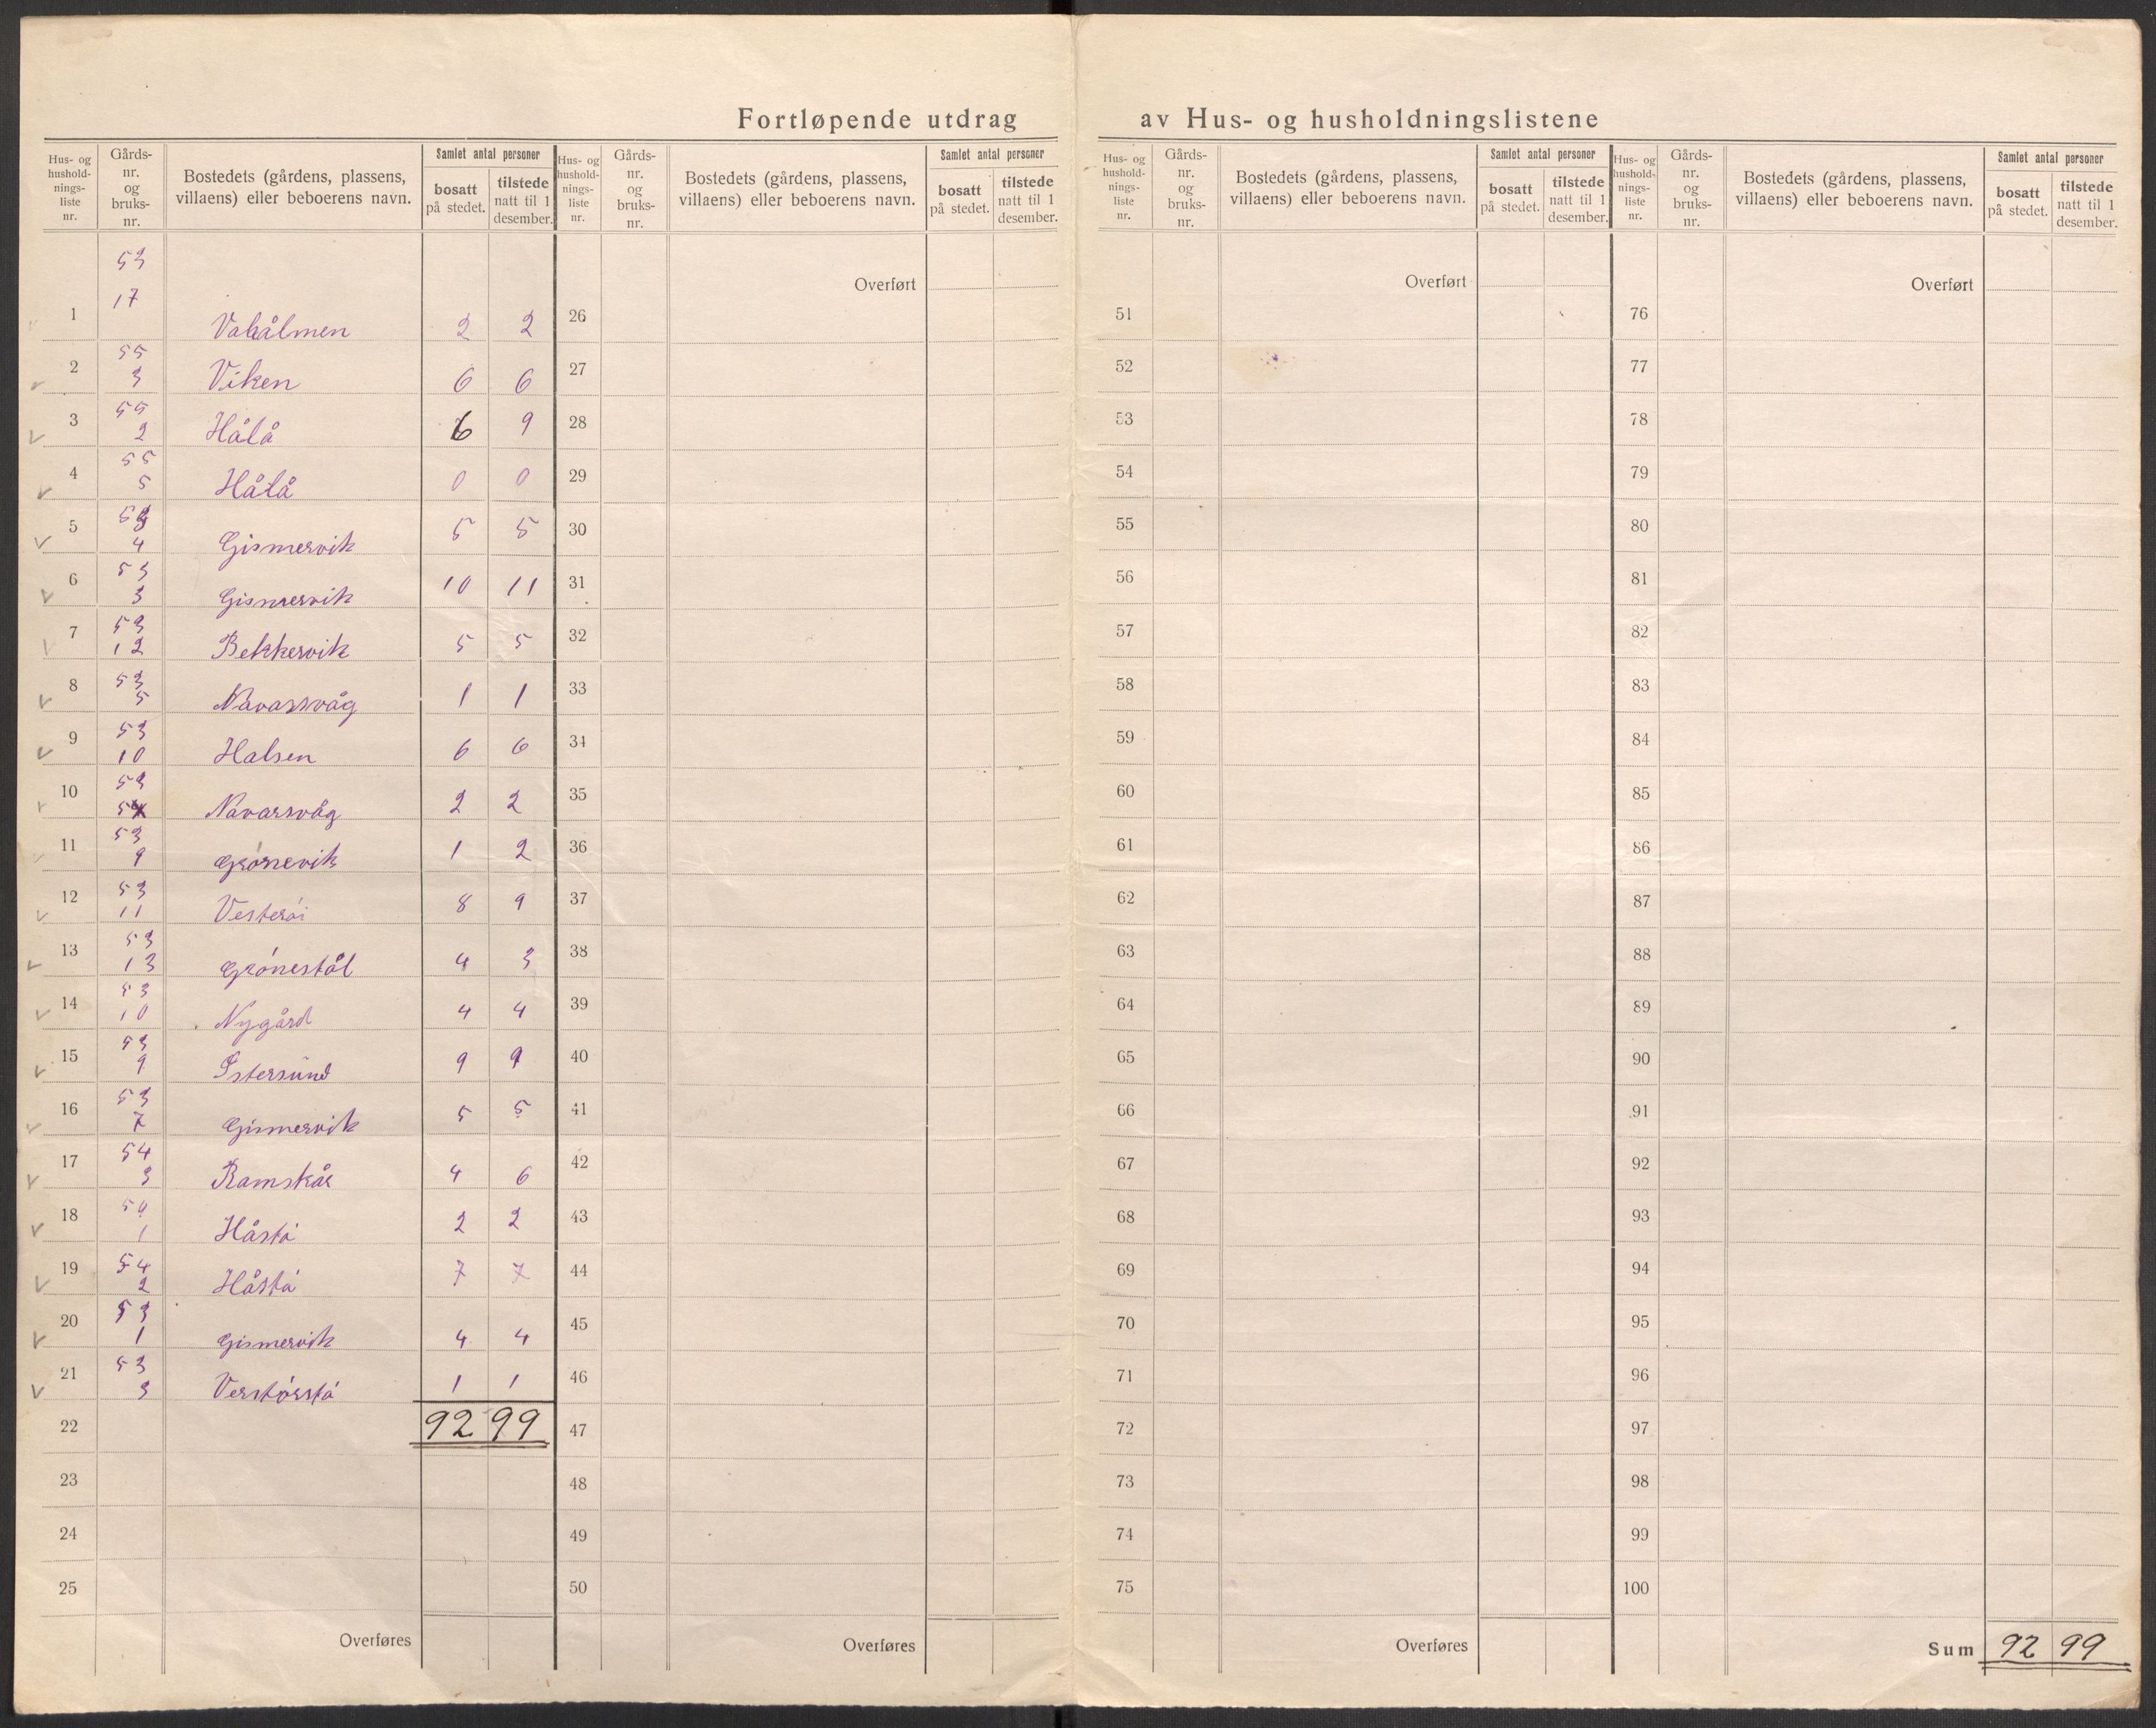 Fortløpende utdrag av Hus- og husholdningslistene
Hus- og husholdnings-liste nr. | Gårds-nr. og bruks-nr. | Bostedets (gårdens, plassens, villaens) eller beboerens navn. | Samlet antal personer | bosatt på stedet. | tilstede natt til 1 desember.
Hus- og husholdnings-liste nr. | Gårds-nr. og bruks-nr. | Bostedets (gårdens, plassens, villaens) eller beboerens navn. | Samlet antal personer | bosatt på stedet. | tilstede natt til 1 desember.
Hus- og husholdnings-liste nr. | Gårds-nr. og bruks-nr. | Bostedets (gårdens, plassens, villaens) eller beboerens navn. | Samlet antal personer | bosatt på stedet. | tilstede natt til 1 desember.
Hus- og husholdnings-liste nr. | Gårds-nr. og bruks-nr. | Bostedets (gårdens, plassens, villaens) eller beboerens navn. | Samlet antal personer | bosatt på stedet. | tilstede natt til 1 desember.
1 53 17 2 2
2 55 3 Viken 6 6
3 55 2 Hålå 6 9
4 55 5 Hålå 0 0
5 53 4 Gismervik 5 5
6 53 3 Gismervik 10 11
7 53 12 Bekkervik 5 5
8 53 5 Navarsvåg 1 1
9 53 10 Halsen 6 6
10 53 Navarsvåg 2 2
11 53 9 Grónevik 1 2
12 53 11 Vesterói 8 9
13 53 13 Grónestöl 4 3
14 53 10 Nygård 4 4
15 53 9 Østersund 9 9
16 53 7 Gismervik 5 5
17 54 3 Ramskår 4 6
18 54 1 Håstó 2 2
19 54 2 Håstó 7 7
20 53 1 Gismervik 4 4
21 53 3 Verstórstó 1 1
22 92 99
23
24
25
Overføres
Overført
26
27
28
29
30
31
32
33
34
35
36
37
38
39
40
41
42
43
44
45
46
47
48
49
50
Overføres
Overført
51
52
53
54
55
56
57
58
59
60
61
62
63
64
65
66
67
68
69
70
71
72
73
74
75
Overføres
Overført
76
77
78
79
80
81
82
83
84
85
86
87
88
89
90
91
92
93
94
95
96
97
98
99
100
Sum 92 99